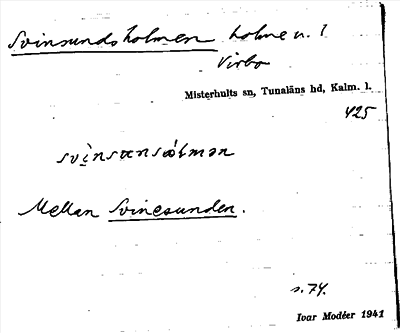 Svinsundsholmen holme u. l
Virbo
Misterhults sn, Tunaläns hd, Kalm. l.
425
svìnsɑnsǿlmən
Mellan Svinesunden.
s. 74.
Ivar Modéer 1941